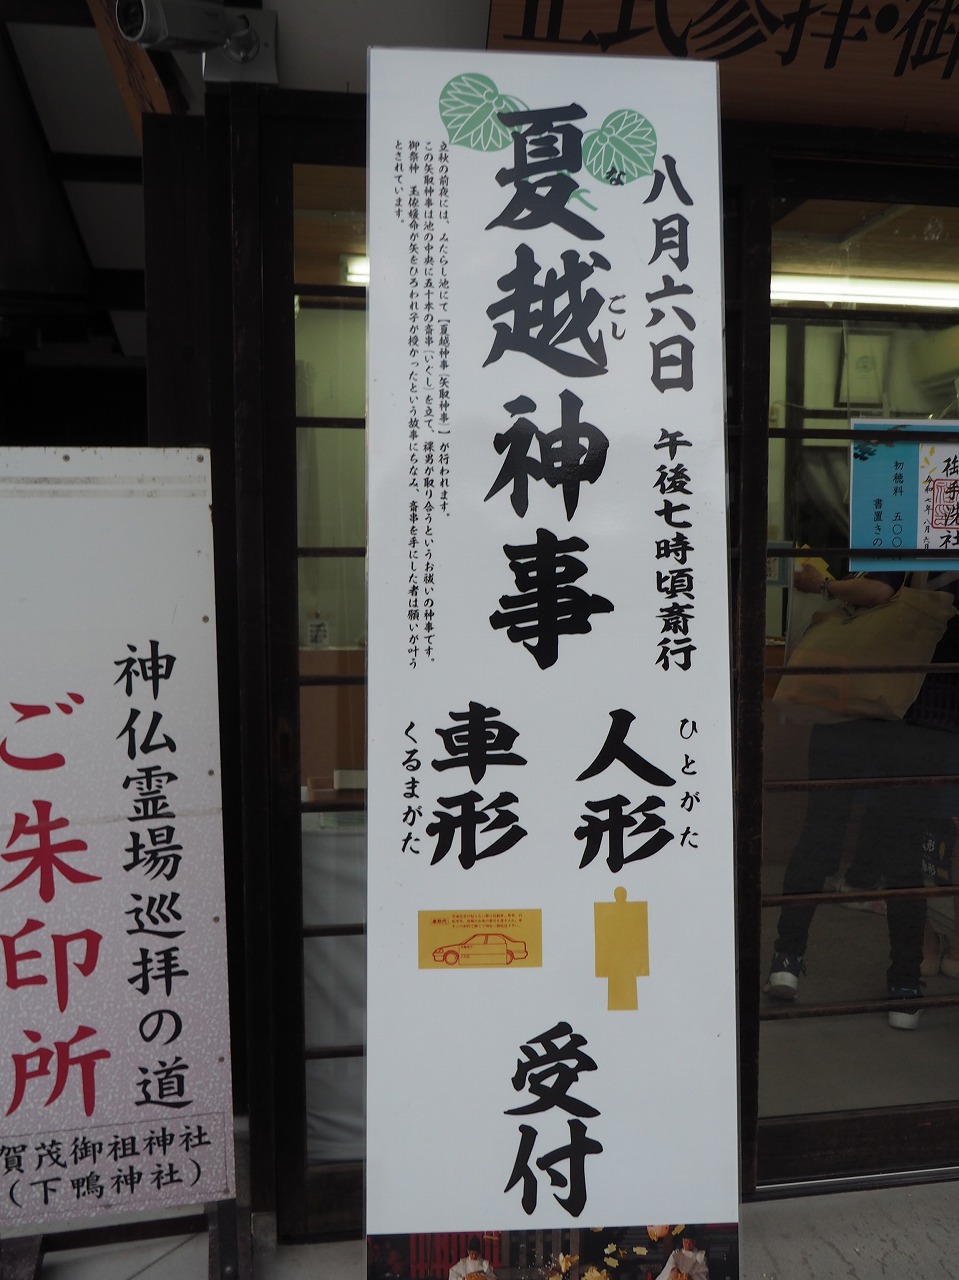 正式参拝・御
八月六日 午後七時頃斎行
夏越神事
な
ごし
立秋の前夜には、みたらし池にて【夏越神事(矢取神事)】が行われます。
この矢取神事は池の中央に五十本の斎串(いぐし)を立て、裸男が取り合うというお祓いの神事です。
御祭神 玉依媛命が矢をひろわれ子が授かったという故事にちなみ、斎串を手にした者は願いが叶う
とされています。
人形
ひとがた
車形
くるまがた
受付
神仏霊場巡拝の道
ご朱印所
賀茂御祖神社
(下鴨神社)
御手洗社
令和七年八月六日
初穂料 五〇〇
書置きの